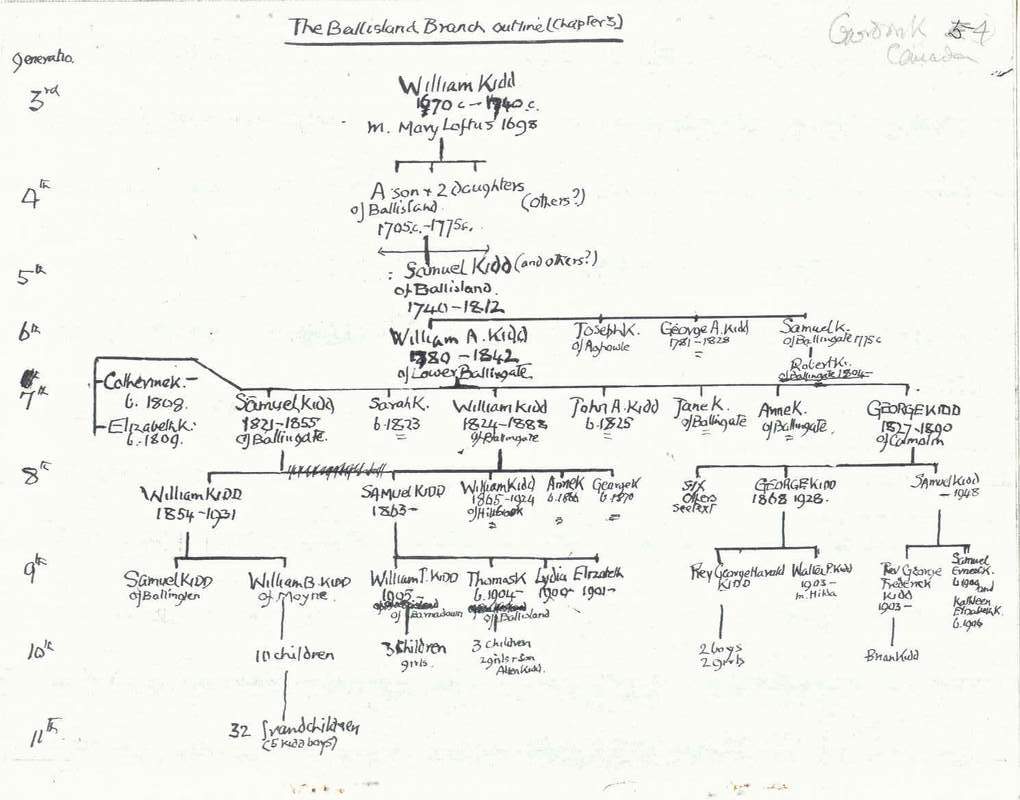 The Ballisland Branch outline (Chapter 5)
Canada
generatio.
3rd
William Kidd
1670 c - 1740 c.
m. Mary Loftus 1698
4th
A son + 2 Daughters
(others?)
of Ballisland
1705c. - 1775c.
5th
: Samuel Kidd (and others?)
of Ballisland.
1740 - 1812
6th
William A. Kidd
1780 - 1842
of Lower Ballingate
Joseph K.
of Aghowle
George A. Kidd
1781 - 1828
Samuel K.
of Ballingate 1775c
Robert K.
of Ballingate 1804-
7th
Catherine K. -
b. 1808.
Elizabeth K.
b. 1809.
Samuel Kidd
1821 - 1855
of Ballingate.
Sarah K.
b. 1823
William Kidd
1824 - 1888
of Ballingate
John A. Kidd
b. 1825
Jane K.
of Ballingate
Anne K.
of Ballingate.
GEORGE KIDD
1827 - 1890
of Colmolm
8th
William KIDD
1854 - 1931
SAMUEL KIDD
1863 -
William Kidd
1865 - 1924
of Hillbrook
Anne K
b. 1866
George K
b. 1870
SIX
others
see Text
GEORGE KIDD
1868 1928.
SAmuel Kidd
- 1948
9th
Samuel KIDD
of Ballinglen
William B. KIDD
of Moyne.
William T. KIDD
1905. -
of Barnadown
Thomas K
b. 1904 -
of Ballisland
Lydia
1900-
Elizabeth
1901 -
Rev George Harold
KIDD
Walter P. Kidd
1903 -
m. Hilda
Rev George
Frederick
KIDD
1903 -
Samuel
Ernest K.
b. 1904
and
Kathleen
Elizabeth K.
b. 1906
10th
10 children
3 children
girls.
3 children
2 girls + son
Allen Kidd.
2 boys
2 girls
Brian Kidd
11th
32 grandchildren
(5 Kidd boys)